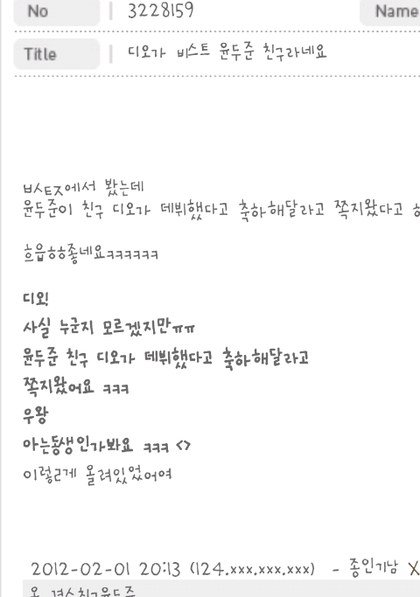 No 3228159 Name
Title 디오가 비스트 윤두준 친구라네요
ㅂㅅㅌㅈ에서 봤는데
윤두준이 친구 디오가 데뷔했다고 축하해달라고 쪽지왔다고
흐읍ㅎㅎ좋네요ㅋㅋㅋㅋㅋㅋ
디오!
사실 누군지 모르겠지만ㅠㅠ
윤두준 친구 디오가 데뷔했다고 축하해달라고
쪽지왔어요 ㅋㅋㅋ
우왕
아는동생인가봐요 ㅋㅋㅋ <>
이렇ㄹ게 올려있었어여
2012-02-01 20:13 (124.xxx.xxx.xxx) - 종인기남